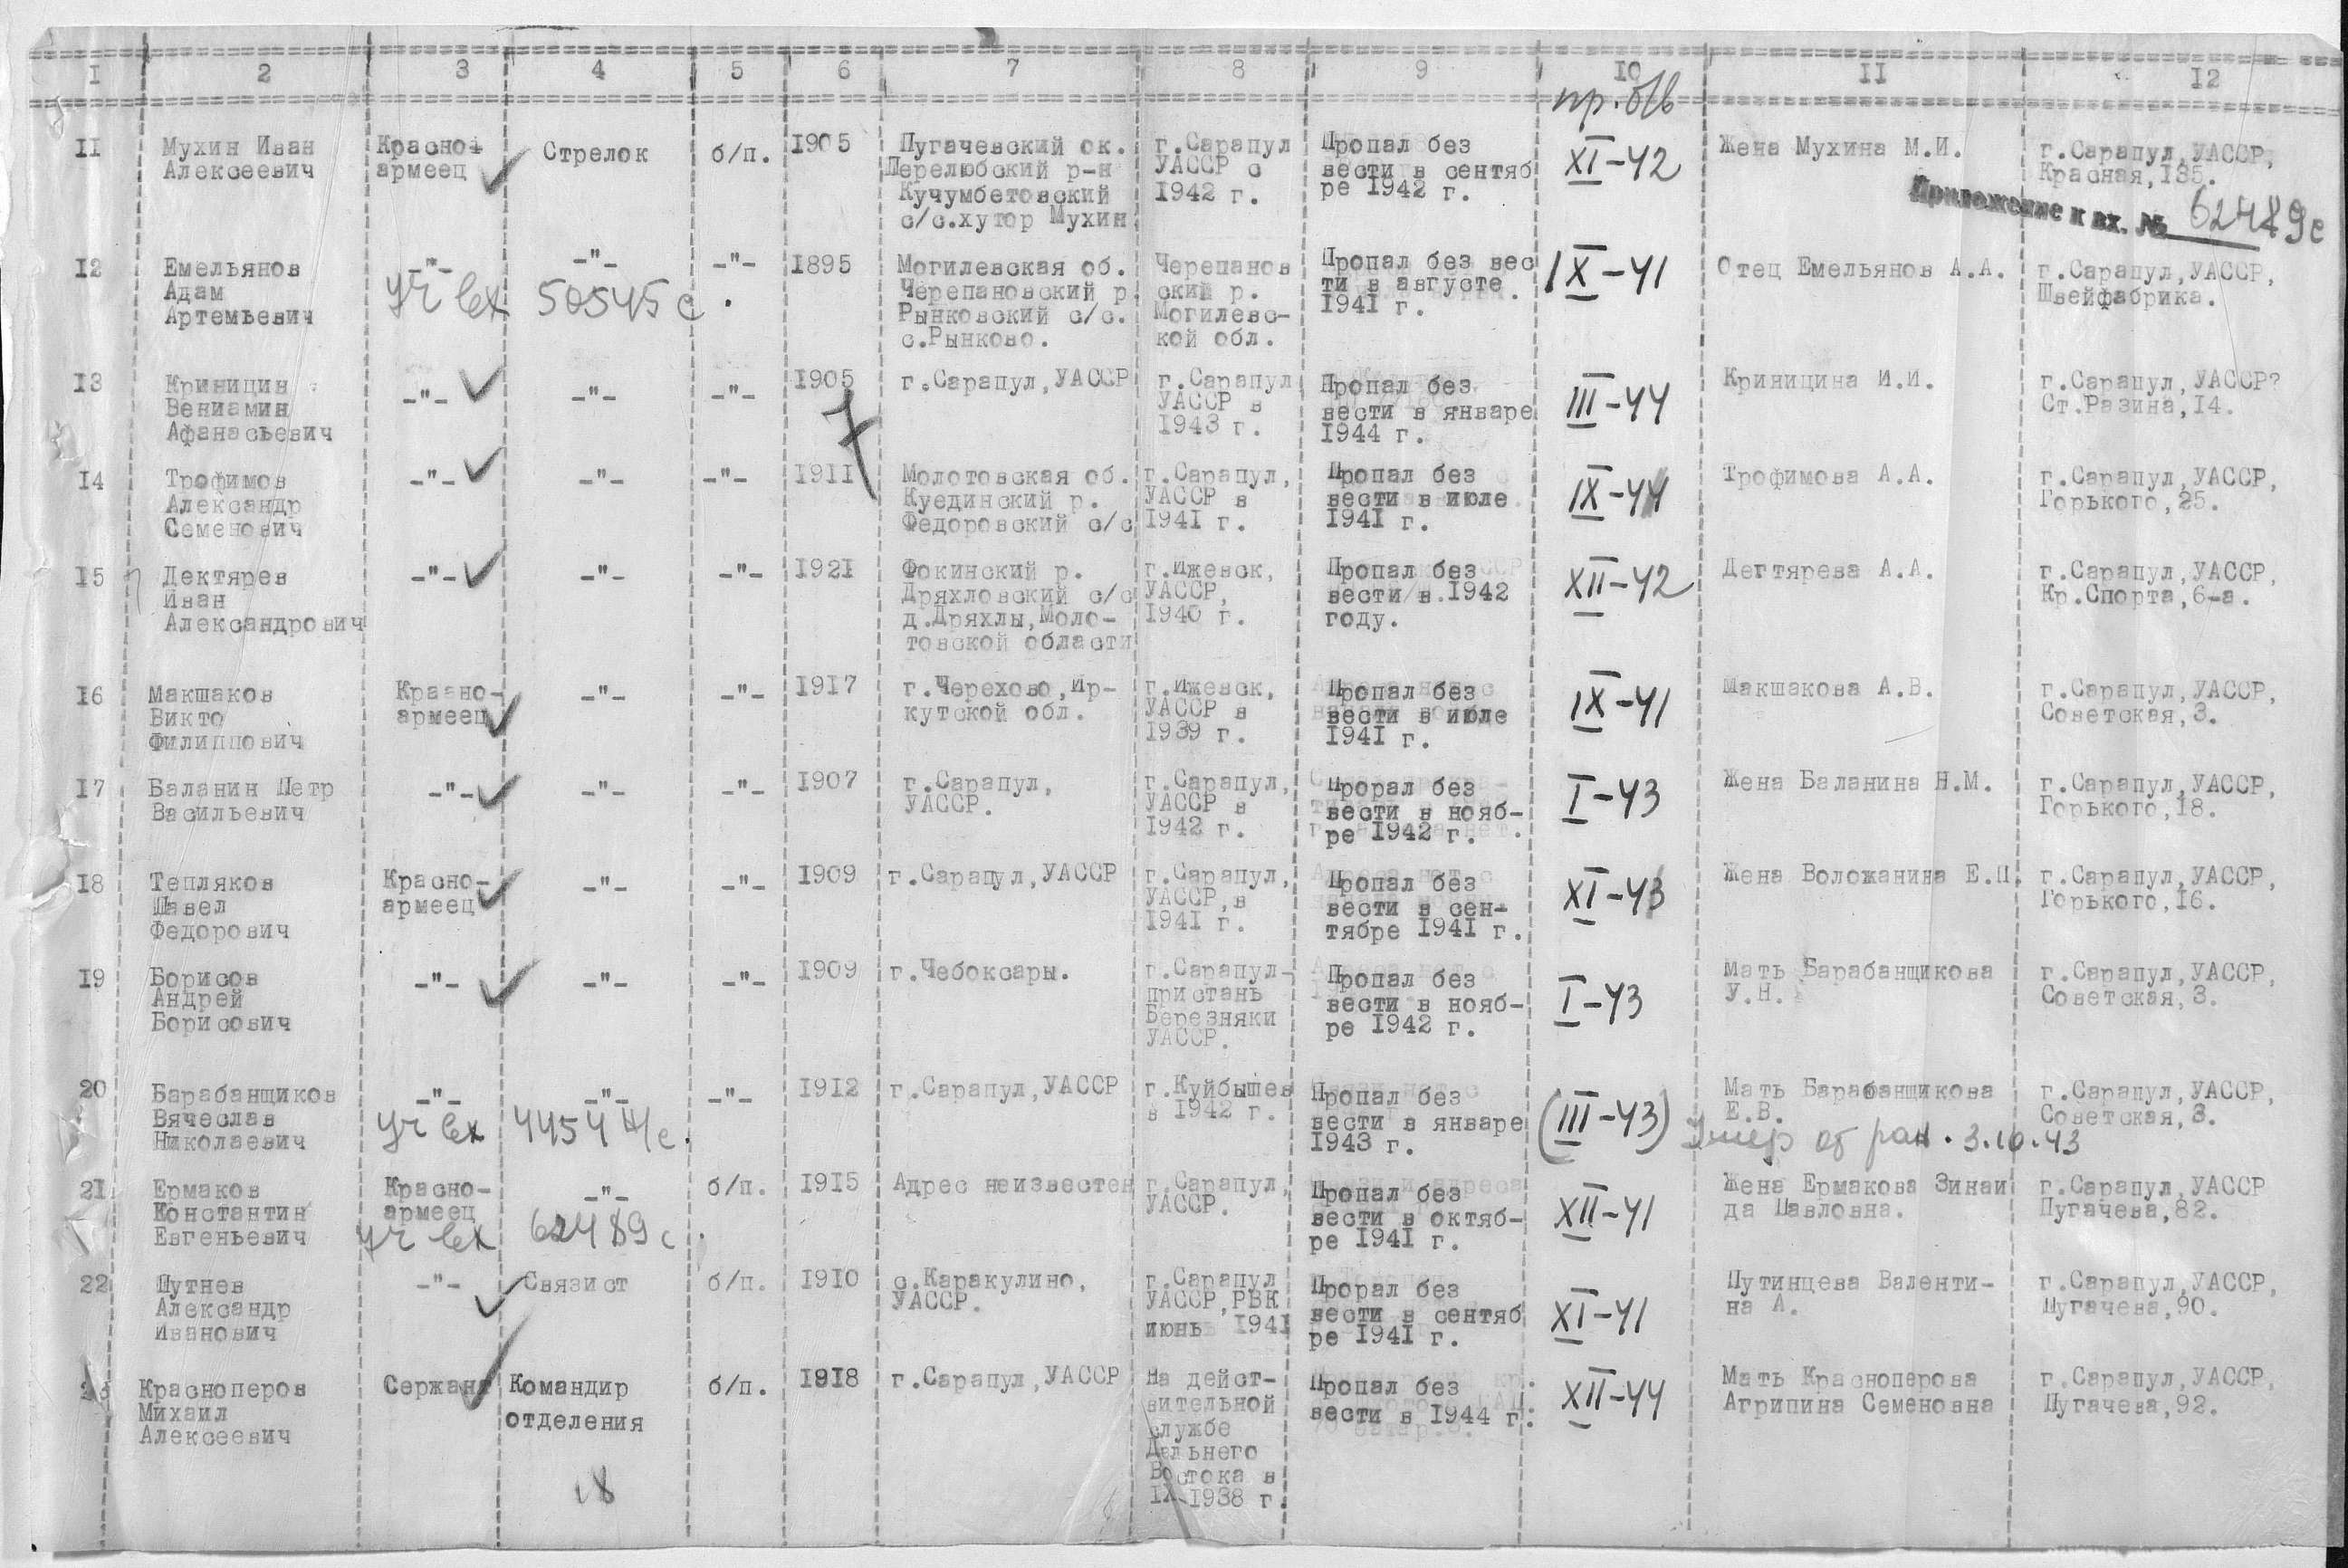 1 2 3 4 5 6 7 8 9 10 11 12
пр. б/в
11 Мухин Иван Алексеевич Красно-армеец Стрелок б/п. 1905 Пугачевский ок. Перелюбский р-н Кучумбетовский с/с.хутор Мухин г.Сарапул УАССР с 1942 г. Пропал без вести в сентяб ре 1942 г. XI-42 Жена Мухина М.И. г.Сарапул,УАССР, Красная,135.
Приложение к вх. № 62489с
12 Емельянов Адам Артемьевич -"- -"- -"- 1895 Могилевская об. Черепановский р. Рынковский с/с. с.Рынково. Черепанов ский р. Могилевс-кой обл. Пропал без вес ти в августе 1941 г. IX-41 Отец Емельянов А.А. г.Сарапул,УАССР, Швейфабрика.
уч вх 50545 с
13 Криницин Вениамин Афанасьевич -"- -"- -"- 1905 г.Сарапул,УАССР г.Сарапул УАССР в 1943 г. Пропал без вести в январе 1944 г. III-44 Криницина И.И. г.Сарапул,УАССР? Ст.Разина,14.
14 Трофимов Александр Семенович -"- -"- -"- 1911 Молотовская об. Куединский р. Федоровский с/с г.Сарапул, УАССР в 1941 г. Пропал без вести в июле 1941 г. IX-41 Трофимова А.А. г.Сарапул,УАССР, Горького,25.
15 Дектярев Иван Александрович -"- -"- -"- 1921 Фокинский р. Дряхловский с/с д.Дряхлы,Моло-товской области г.Ижевск, УАССР, 1940 г. Пропал без вести в 1942 году. XII-42 Дегтярева А.А. г.Сарапул,УАССР, Кр.Спорта,6-а.
16 Макшаков Викто Филиппович Краано-армеец -"- -"- 1917 г.Черехово,Ир-кутской обл. г.Ижевск, УАССР в 1939 г. Пропал без вести в июле 1941 г. IX-41 Макшакова А.В. г.Сарапул,УАССР, Советская,3.
17 Баланин Петр Васильевич -"- -"- -"- 1907 г.Сарапул, УАССР. г.Сарапул, УАССР в 1942 г. Прорал без вести в нояб-ре 1942 г. I-43 Жена Баланина Н.М. г.Сарапул,УАССР, Горького,18.
18 Тепляков Павел Федорович Красно-армеец -"- -"- 1909 г.Сарапул,УАССР г.Сарапул, УАССР,в 1941 г. Пропал без вести в сен-тябре 1941 г. Жена Воложанина Е.П. г.Сарапул,УАССР, Горького,16.
19 Борисов Андрей Борисович -"- -"- -"- 1909 г.Чебоксары. г.Сарапул-пристань Березняки УАССР. Пропал без вести в нояб-ре 1942 г. I-43 Мать Барабанщикова У.Н. г.Сарапул,УАССР, Советская,3.
20 Барабанщиков Вячеслав Николаевич -"- -"- -"- 1912 г.Сарапул,УАССР г.Куйбышев в 1942 г. Пропал без вести в январе 1943 г. (III-43) Мать Барабанщикова Е.В. г.Сарапул,УАССР, Советская,3.
уч вх Умер от ран. 3.10.43
21 Ермаков Константин Евгеньевич Красно-армеец -"- б/п. 1915 Адрес неизвестен г.Сарапул, УАССР. Пропал без вести в октяб-ре 1941 г. XII-41 Жена Ермакова Зинаи да Павловна. г.Сарапул,УАССР Пугачева,82.
уч вх 62489 с.
22 Путнев Александр Иванович -"- Связист б/п. 1910 с.Каракулино, УАССР. г.Сарапул УАССР,РВК июнь 1941 Прорал без вести в сентяб ре 1941 г. XI-41 Путинцева Валенти-на А. г.Сарапул,УАССР, Пугачева,90.
23 Красноперов Михаил Алексеевич Сержант Командир отделения б/п. 1918 г.Сарапул,УАССР На дейст-вительной службе Дальнего Востока в IX-1938 г. Пропал без вести в 1944 г. XII-44 Мать Красноперова Агрипина Семеновна г.Сарапул,УАССР, Пугачева,92.